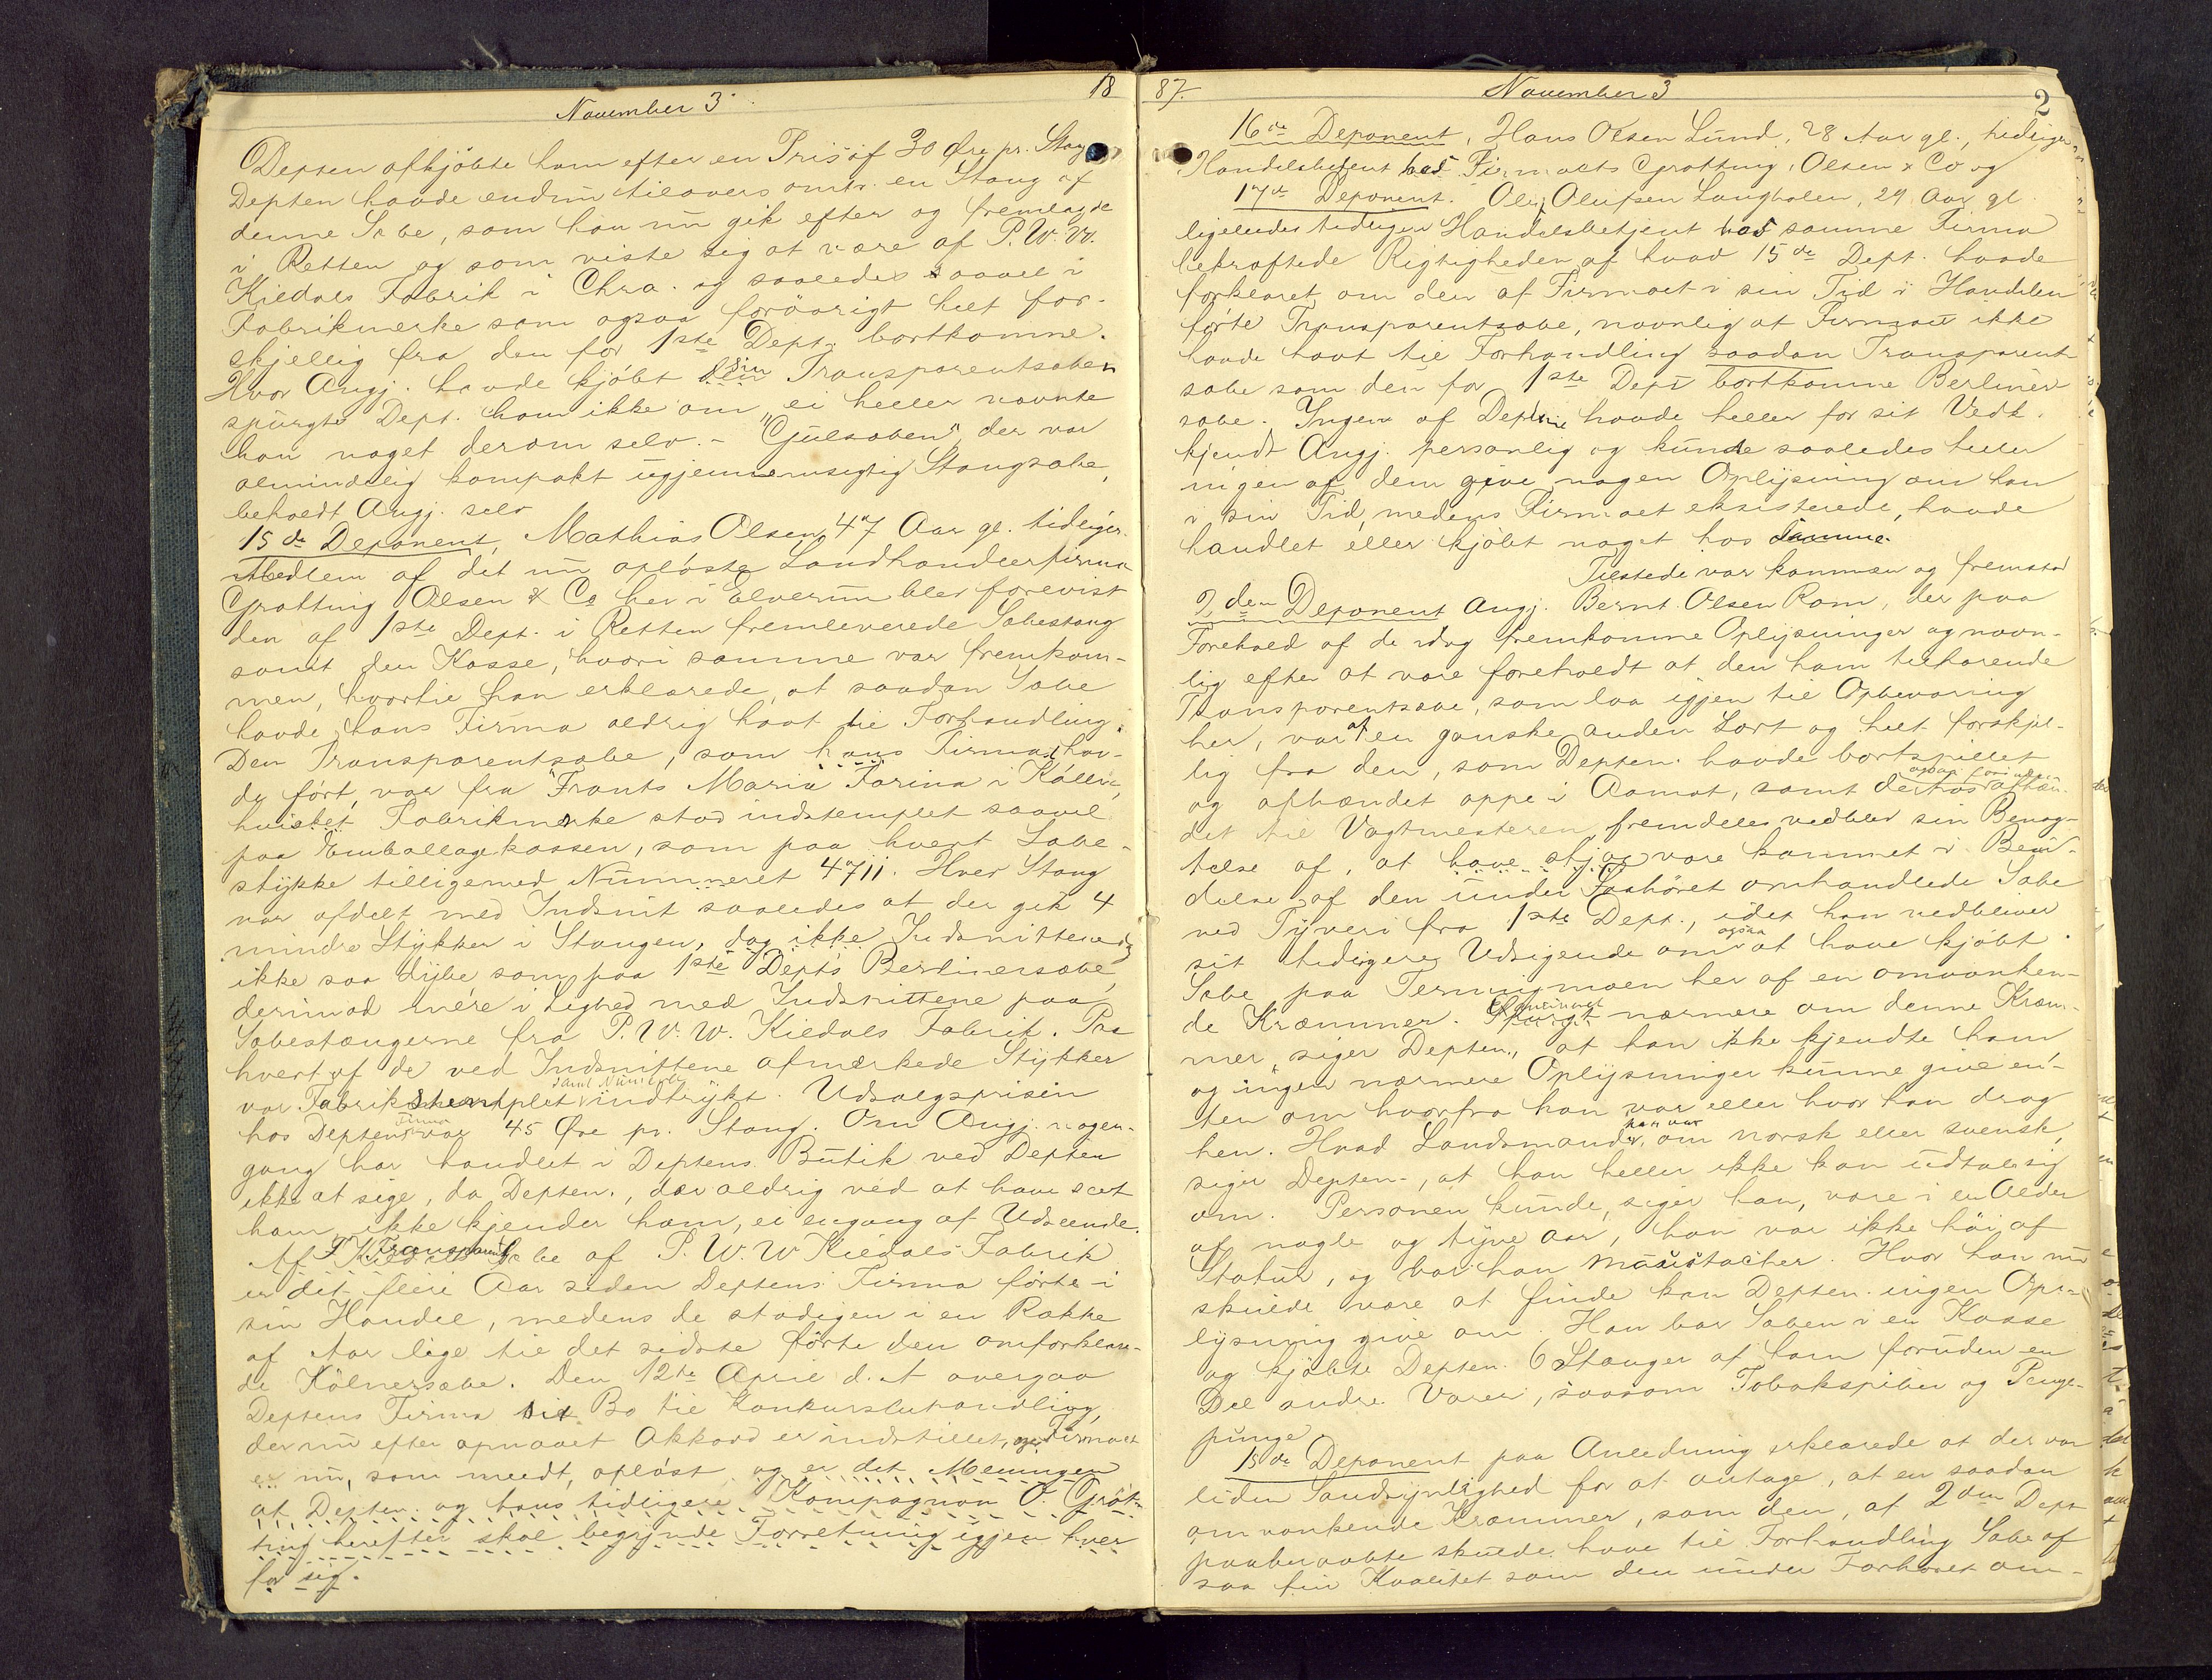 November 3
18
Depten afkjöbte ham efter en Pris af 30 Øre pr. Stang
Depten havde endnu tilovers omtr. en Stang af
denne Sæbe, som han nu gik efter og fremlagde
i Retten og som viste sig at være af P. W. W.
Kiedals Fabrik i Chra. og saaledes saavel i
Fabrikmerke som ogsaa forövrigt helt for-
skjellig fra den for 1ste Dept. bortkomne.
Hvor Angj. havde kjöbt sin Transparentsæben
spurgte Dept. ham ikke om, ei heller nævnte
han noget derom selv. - "Gulsæben", der var
almindelig kompakt ugjennemsigtig Stangsæbe,
beholdt Angj. selv
15de Deponent, Mathias Olsen, 47 Aar gl. tidliger
Medlem af det nu oplöste Landhandlerfirma
Grøtting Olsen & Co her i Elverum blev forevist
den af 1ste Dept. i Retten fremleverede Sæbestang
samt den Kasse, hvori samme var fremkom-
men, hvortil han erklærede, at saadan Sæbe
havde hans Firma aldrig havt til Forhandling.
Den Transparentsæbe, som hans Firma hav-
de fört, var fra Frants Maria Farina i Kölln,
hvisket Fabrikmerke stod indstemplet saavel
paa Emballagekassen, som paa hvert Sæbe-
stykke tilligemed Nummeret 4711. Hver Stang
var afdelt med Indsnit saaledes at der gik 4
mindre Stykker i Stangen, dog ikke Indsnittene
ikke saa dybe, som paa 1ste Depts Berlinersæbe,
derimod mere i Lighed med Indsnittene paa
Sæbestængerne fra P. W. W. Kiedals Fabrik. Paa
hvert af de ved Indsnittene afmærkede Stykker
samt Numer
var Fabrikstemplet indtrykt. Udsalgsprisen
Firma
hos Deptens var 45 Øre pr. Stang. Om Angj. nogen-
gang har handlet i Deptens Butik ved Depten
ikke at sige, da Depten., der aldrig ved at have seet
ham, ikke kjender ham, ei engang af Udseende.
Af Transparentsæbe af P. W. W Kiedals Fabrik
er det flere Aar siden Deptens Firma förte i
sin Handel, medens de stadigen i en Række
af Aar lige til det sidste förte den omforklare-
de Kölnersæbe. Den 12te April d. A overgav
Deptens Firma sit Bo til Konkursbehandling,
der nu efter opnaaet Akkord er indstillet, og Firmaet
er nu, som meldt, oplöst og er det Meningen
at Depten. og hans tidligere Kompagnon O. Gröt-
ting herefter skal begynde Forretning igjen hver
for sig.
87.
November 3
2
16de Deponent, Hans Olsen Lund, 28 Aar gl., tidliger
Handelsbetjent hos Firmaets Grøtting, Olsen & Co og
17de Deponent. Ole Olufsen Langholen, 29 Aar gl
ligeledes tidligere Handelsbetjent hos samme Firma
bekræftede Rigtigheden af hvad 15de Dept. havde
forklaret om den af Firmaet i sin Tid i Handelen
förte Transparentsæbe, navnlig at Firmaet ikke
havde havt til Forhandling saadan Transparent-
sæbe som den for 1ste Dept bortkomne Berliner
sæbe. Ingen af Deptne havde heller for sit Vedk.
kjendt Angj. personlig og kunde saaledes heller
ingen af dem give nogen Oplysning om han
i sin Tid, medens Firmaet eksisterede, havde
handlet eller kjöbt noget hos samme.
Tilstede var kommen og fremstod
2den Deponent Angj. Bernt Olsen Rom, der paa
Forehold af de idag fremkomne Oplysninger og navn-
lig efter at være foreholdt at den ham tilhørende
Transparentsæbe, som laa igjen til Opbevaring
her, var af en ganske anden Sort og helt forskjel-
lig fra den, som Depten. havde bortspillet
og afhændet oppe i Aamot, samt derhos afhæn-
det til Vagtmesteren, fremdeles vedblev sin Benæg-
telse af, at have stjaalet være kommet i Besid-
delse af den under Forhöret omhandlede Sæbe
ved Tyveri fra 1ste Dept., idet han vedbliver
ogsaa
sit tidligere Udsigende om at have kjöbt
Sæbe paa Terningmoen her af en omvanken-
Examineret
de Kræmmer. nærmere om denne Kræm-
mer, siger Depten., at han ikke kjendte ham
og ingen nærmere Oplysninger kunne give en-
ten om hvorfra han var eller hvor han drog
han var
hen. Hvad Landsmand, om norsk eller svensk,
siger Depten., at han heller ikke kan udtale sig
om. Personen kunde, siger han, være i en Alder
af nogle og tyve Aar, han var ikke höi af
Statur, og bar han Maustacher. Hvor han nu
skulde være at finde kan Depten. ingen Op-
lysning give om. Han bar Sæben i en Kasse
og kjöbte Depten. 6 Stænger af ham foruden en
Del andre Varer, saasom Tobakspiber og Penge-
punge
15de Deponent paa Anledning erklærede at der var
liden Sandsynlighed for at antage, at en saadan
omvankende Kræmmer, som den, af 2den Dept
paaberaabte skulde have til Forhandling Sæbe af
saa fin Kvalitet som den under Forhöret om-